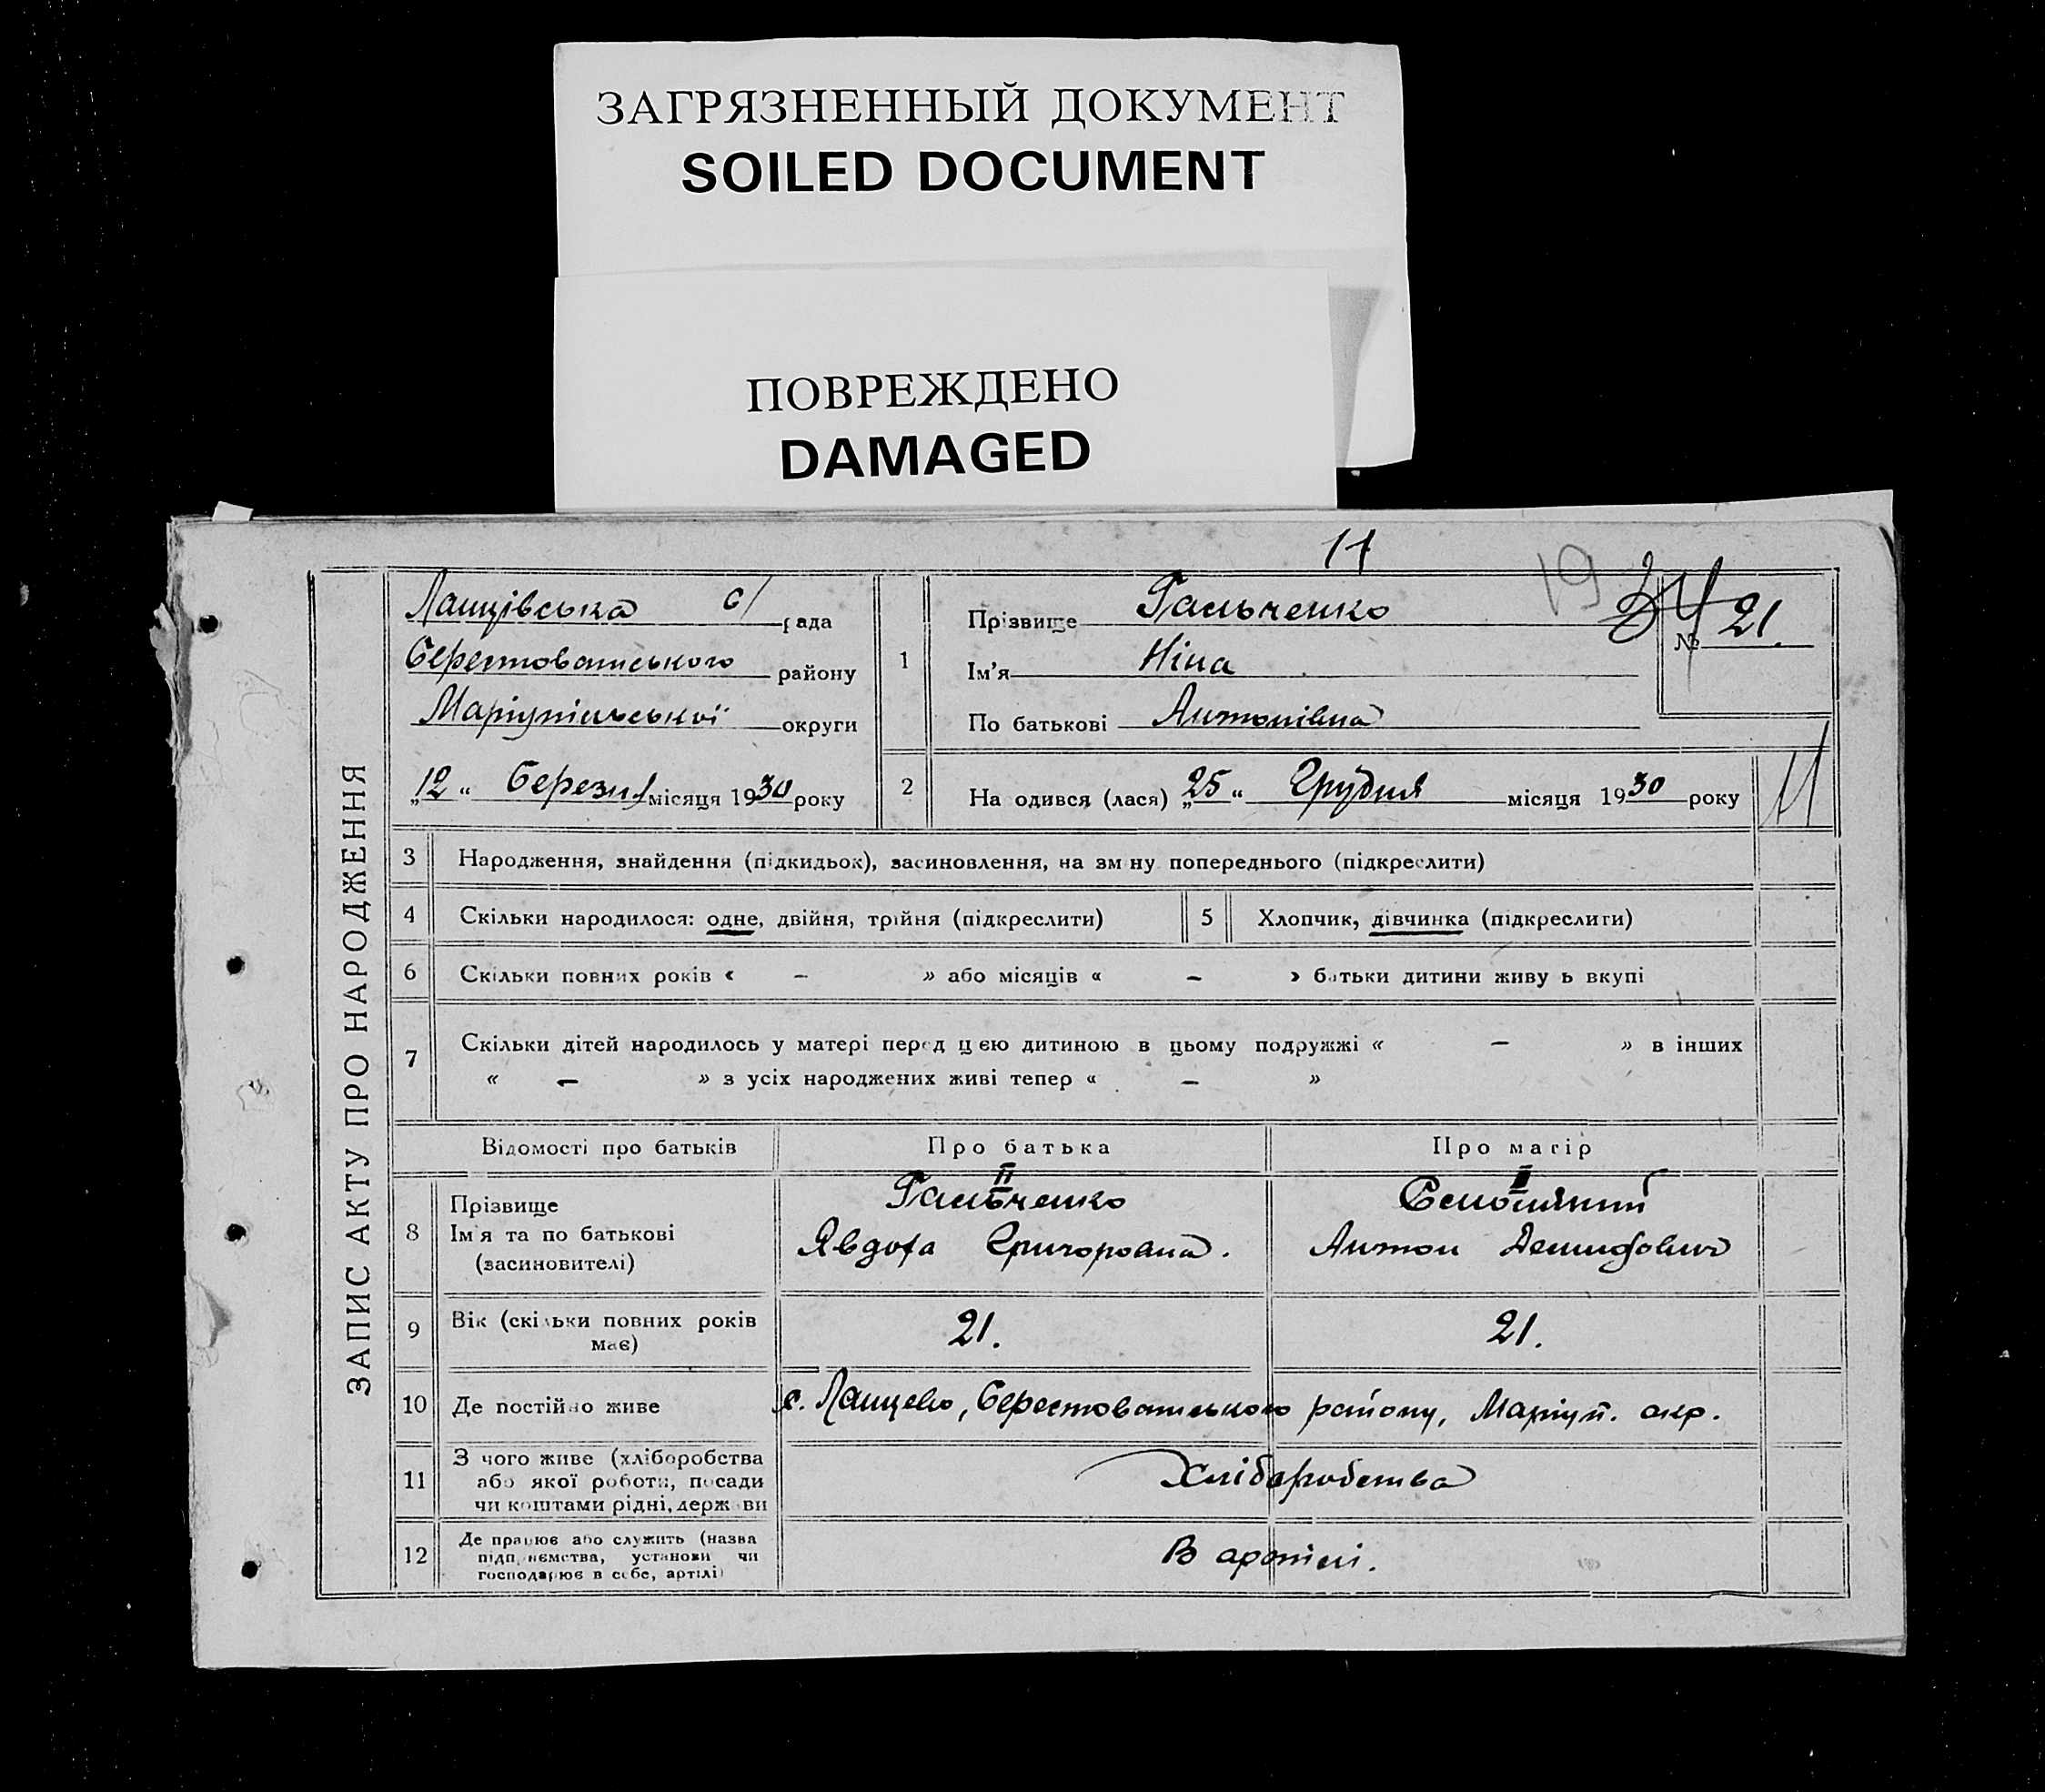 ЗАГРЯЗНЕННЫЙ ДОКУМЕНТ
SOILED DOCUMENT
ПОВРЕЖДЕНО
DAMAGED
11
19
21.
№
ЗАПИС АКТУ ПРО НАРОДЖЕННЯ
Лащівська с/ рада
Берестоватського району
Маріупільської округи
„12“ Березня місяця 1930 року
1
Прізвище Гальченко
Ім'я Ніна
По батькові Антонівна
2 На одився (лася) „25“ Грудня місяця 1930 року
3 Народження, знайдення (підкидьок), засиновлення, на зм ну попереднього (підкреслити)
4 Скільки народилося: одне, двійня, трійня (підкреслити) 5 Хлопчик, дівчинка (підкреслити)
6 Скільки повних років « – » або місяців « – » батьки дитини живу ь вкупі
7 Скільки дітей народилось у матері перед цією дитиною в цьому подружжі « – » в інших
« – » з усіх народжених живі тепер « – »
Відомості про батьків Про батька Про матір
II I
8 Прізвище Гальченко
Ім'я та по батькові Явдоха Григоровна. Антон Демидович
(засиновителі)
9 Вік (скільки повних років має) 21. 21.
10 Де постійно живе с. Лащево, Берестоватського району, Маріуп. окр.
11 З чого живе (хліборобства
або якої роботи, посади
чи коштами рідні, держави Хліборобства
12 Де працює або служить (назва
підп иємства, установи чи
господарює в себе, артілі) В артілі.